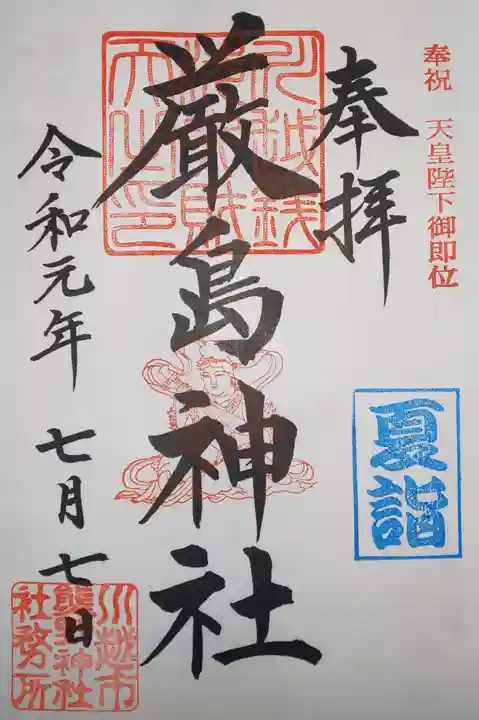 奉祝 天皇陛下御即位
奉拝
夏詣
厳島神社
令和元年 七月 七日
川越市
熊野神社
社務所